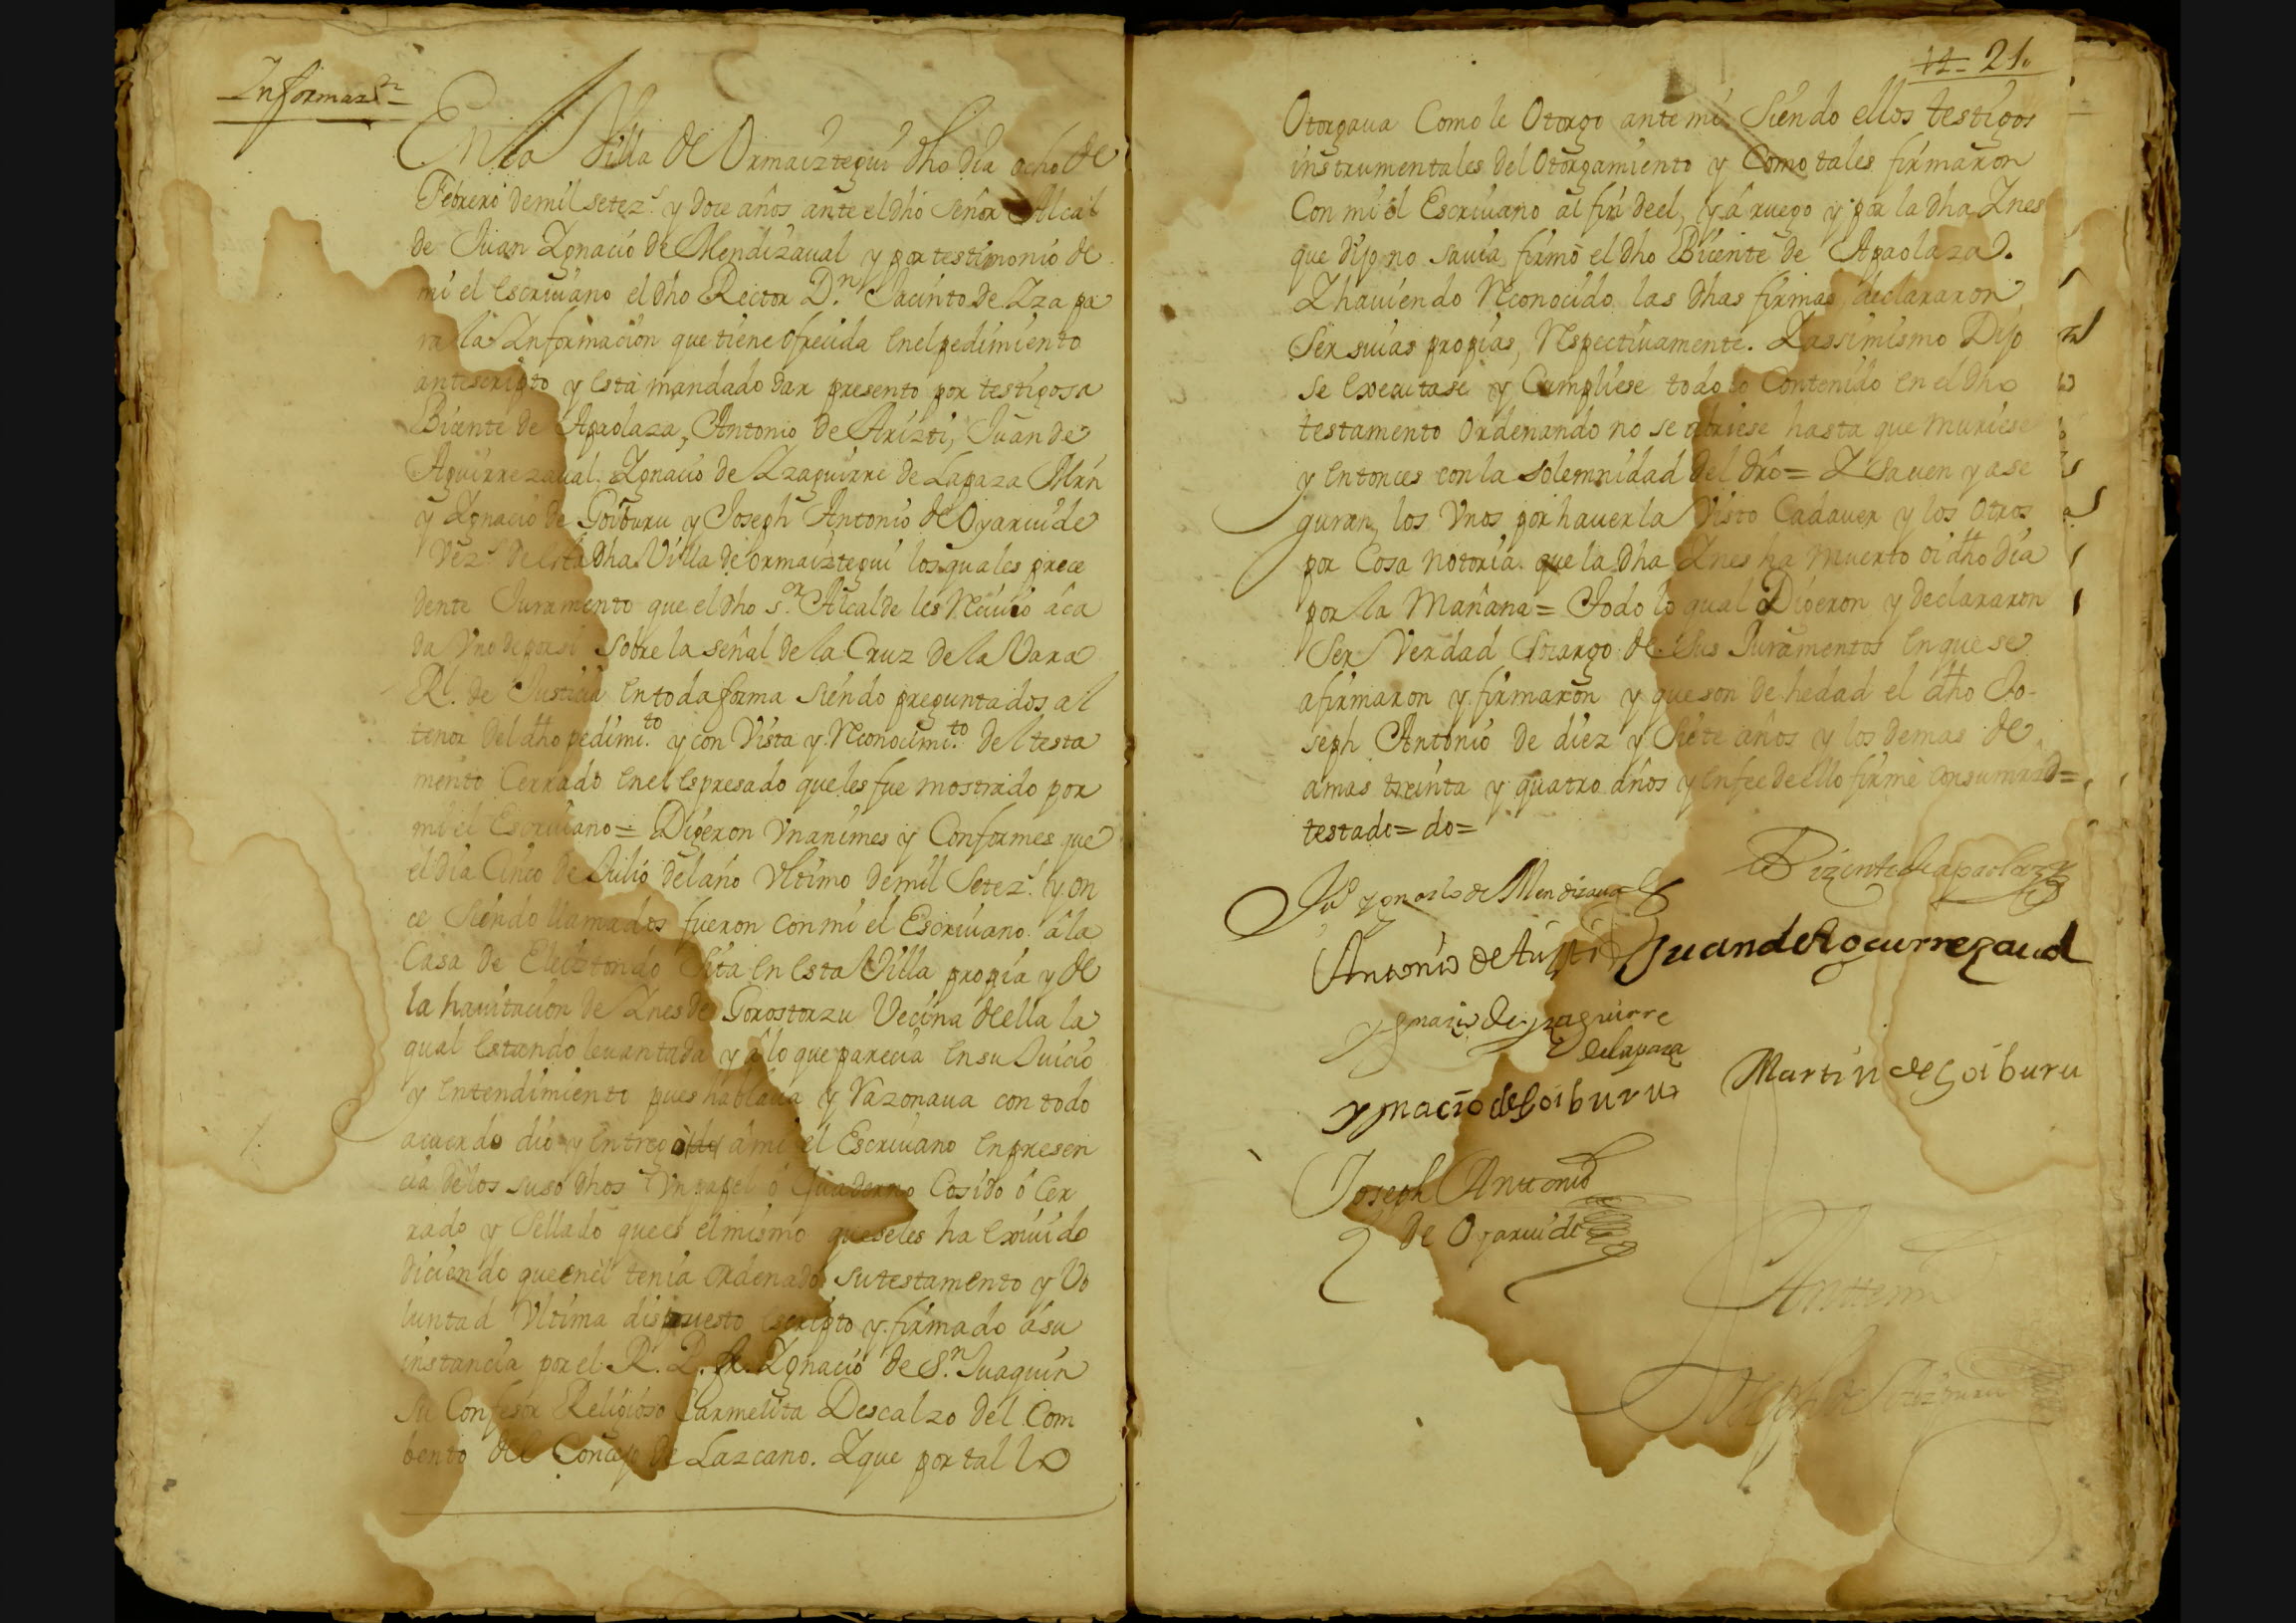 Informaz.on
En la Villa de Ormaiztegui dho dia ocho de
Febrero de mil setez.s y doce años ante el dho Señor Alcal
de Juan Ygnacio de Mendizaval y por testimonio de
mi el escriuano el dho Rector D.n Jacinto de Yza pa
ra la Ynformacion que tiene ofrecida en el pedimiento
antescripto y esta mandado dar presento por testigos a
Bicente de Apaolaza, Antonio de Arizti, Juan de
Aguirrezaual, Ygnacio de Yzaguirre de Lapaza Mrn
y Ygnacio de Goiburu y Joseph Antonio de Oyaruide
Vez.s de esta dha Villa de Ormaiztegui los quales prece
dente Juramento que el dho s.or Alcalde les Reciuio a ca
da Vno de por si sobre la señal de la Cruz de la Vara
Rl. de Justicia en toda forma siendo preguntados al
tenor del dho pedimi.to y con Vista y Reconocimi.to del testa
mento Cerrado en el espresado que les fue mostrado por
mi el Escriuano = Digeron Vnanimes y Conformes que
el dia Cinco de Julio del año Vltimo de mil Setez.s y on
ce siendo llamados fueron con mi el Escriuano a la
Casa de Eleiztondo Sita en esta Villa propia y de
la hauitacion de Ynes de Gorostorzu Vecina de ella la
qual estando leuantada y a lo que parecia en su Juicio
y entendimiento pues hablaua y Razonaua con todo
acuerdo dio y entrego a mi el Escriuano en presen
cia de los suso dhos Vn papel o quaderno Cosido o Cer
rado y Sellado que es el mismo que se les ha exiuido
diciendo que en el tenia ordenado su testamento y Vo
luntad Vltima dispuesto escripto y firmado a su
instancia por el R. P. fr. Ygnacio de S.n Juaquin
su Confesor Religioso Carmelita Descalzo del Com
bento del Concejo de Lazcano. Y que por tal lo
11= 21.
Otorgaua Como le Otorgo ante mi Siendo ellos testigos
instrumentales del Otorgamiento y Como tales firmaron
Con mi el Escriuano al fin de el, y a ruego y por la dha Ynes
que dijo no sauia firmo el dho Bicente de Apaolaza.
Y hauiendo Reconocido las dhas firmas declararon
Ser suias propias, Respectiuamente. Y assimismo Dijo
se executase y Cumpliese todo lo Contenido en el dho
testamento Ordenando no se abriese hasta que muriese
y entonces con la solemnidad del dro = Y sauen y ase
guran, los Vnos por hauerla Visto Cadauer y los Otros
por Cosa notoria que la dha Ynes ha muerto oi dho dia
por la Mañana = Todo lo qual Digeron y declararon
Ser Verdad Socargo de sus Juramentos en que se
afirmaron y firmaron y que son de hedad el dho Jo-
seph Antonio de diez y Siete años y los demas de
a mas treinta y quatro años y en fee de ello firme con su mrd =
testado = do =
Ju.o Ygnacio de Mendizaual
Bizente de apaolaza
Antonio de Arizti
Juan de Agurrezaual
Ygnazio de yzaguirre
de lapaza
Martin de Goiburu
ygnacio de Goiburu
Joseph Antonio
de Oyaruide
Ante mi
Joseph de